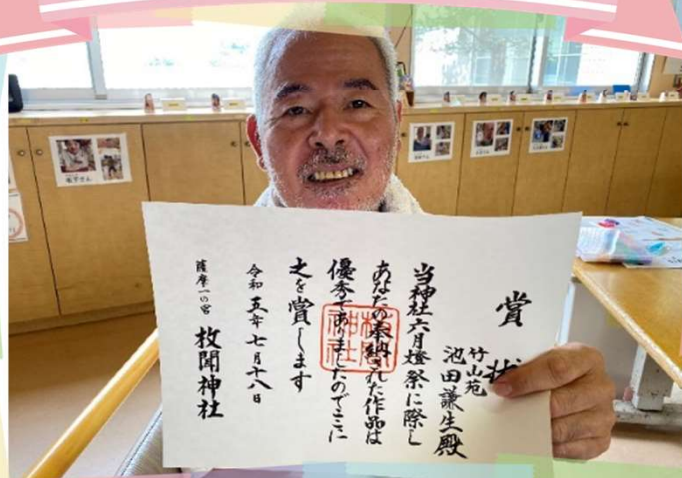 賞状
竹山苑
池田謙生殿
当神社六月燈祭に際し
あなたの奉納された作品は
優秀でありましたのでここに
之を賞します
令和五年七月十八日
薩摩一の宮
枚聞神社